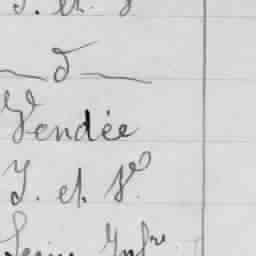 d°
Vendée
I. et V°
Seine Infre